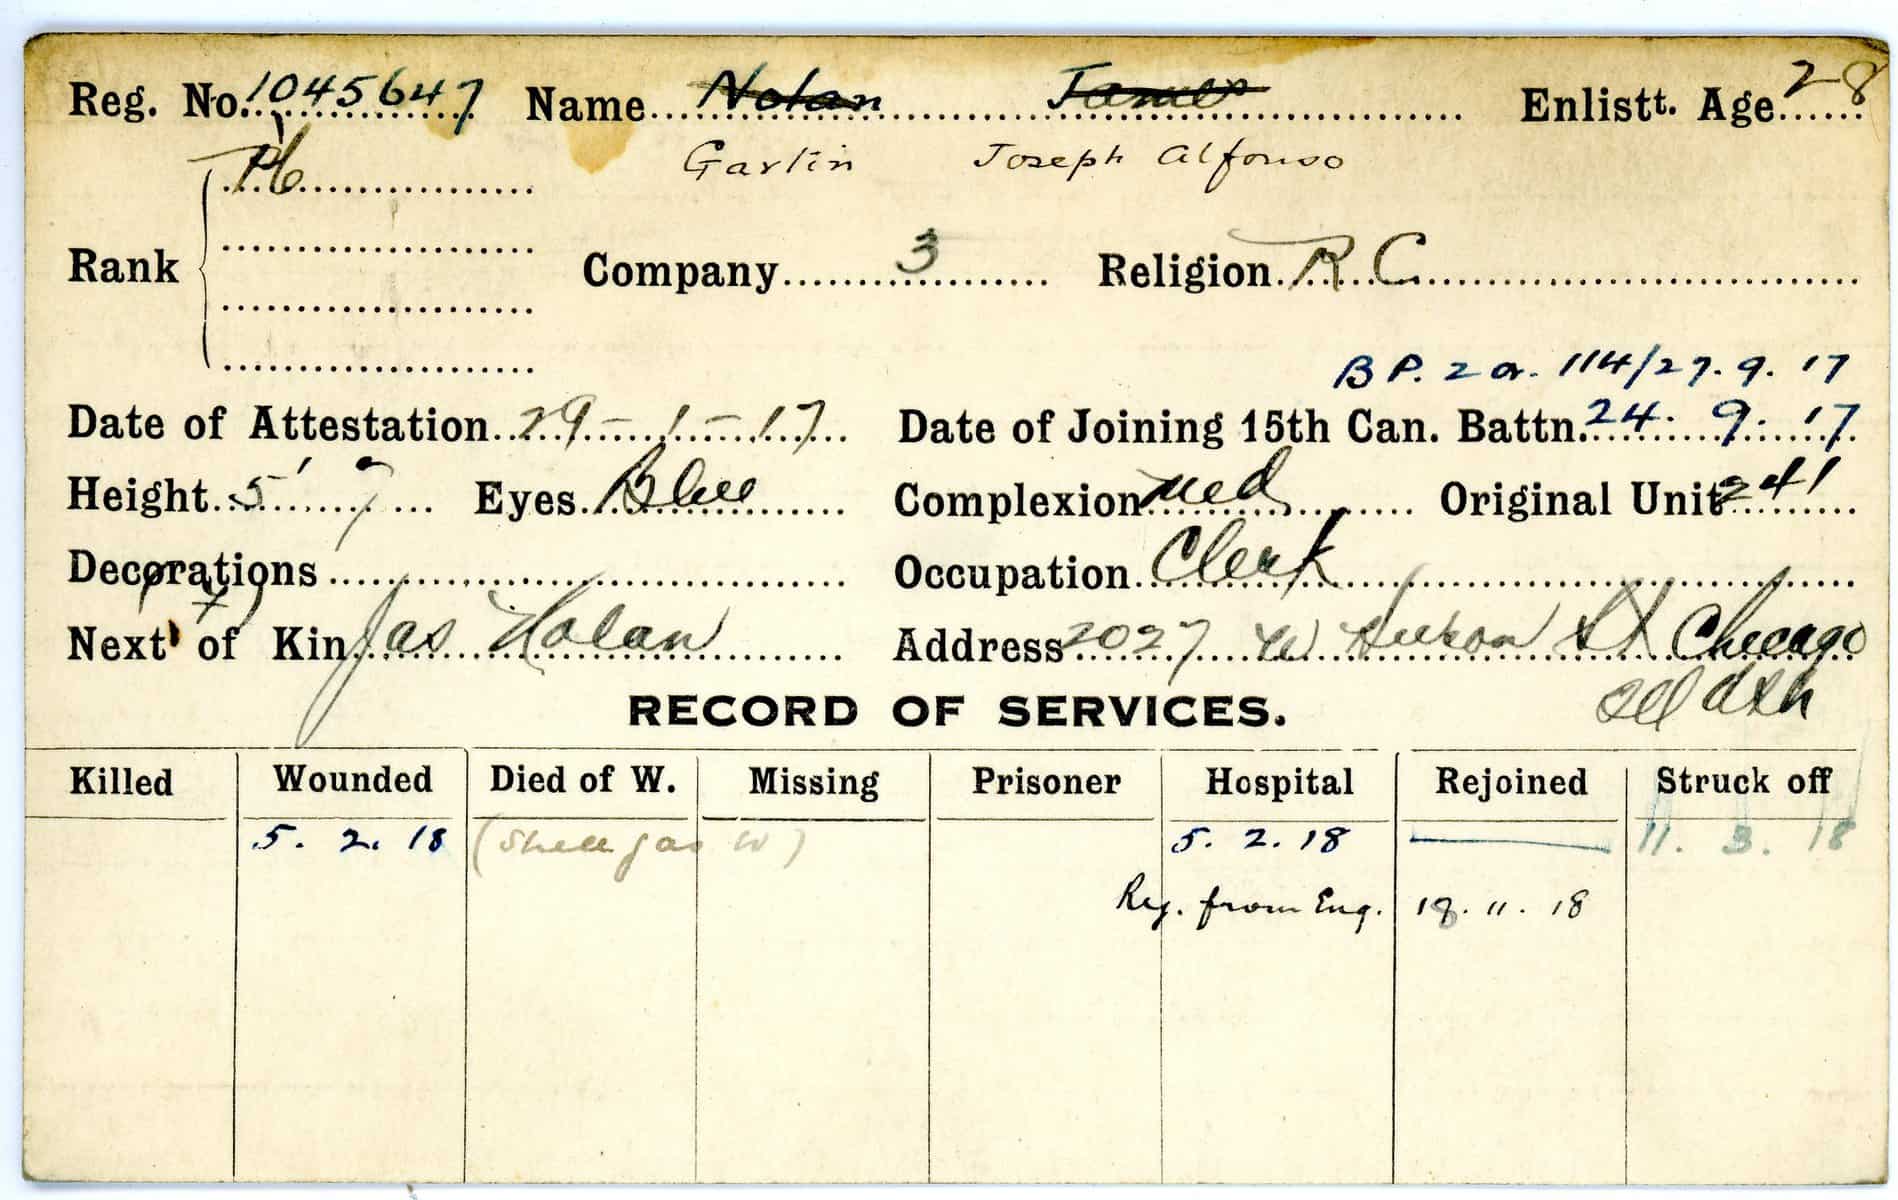 Reg. No. 1045647 Name Nolan James Enlistt. Age 28
Pte Garlin Joseph Alfonso
Rank Company 3 Religion R C
B P. 2 Or. 114/27. 9. 17
Date of Attestation 29-1-17 Date of Joining 15th Can. Battn. 24. 9. 17
Height 5' 7 Eyes Blue Complexion Med Original Unit 241
Decorations Occupation Clerk
Next of Kin Jas Nolan Address 2027 W Huron St Chicago
Ill
RECORD OF SERVICES.
Killed Wounded Died of W. Missing Prisoner Hospital Rejoined Struck off
5. 2. 18 (Shell gas W) 5. 2. 18 11. 3. 18
from Eng. 18. 11. 18